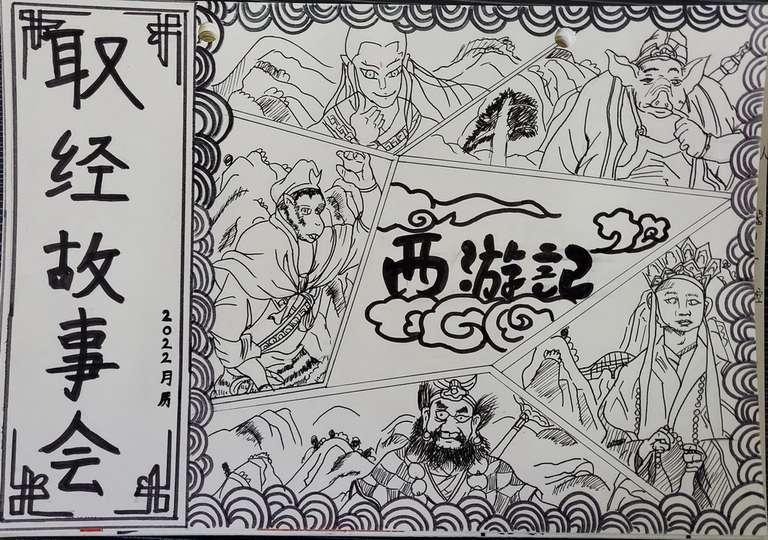 取经故事会
2022月历
西游記